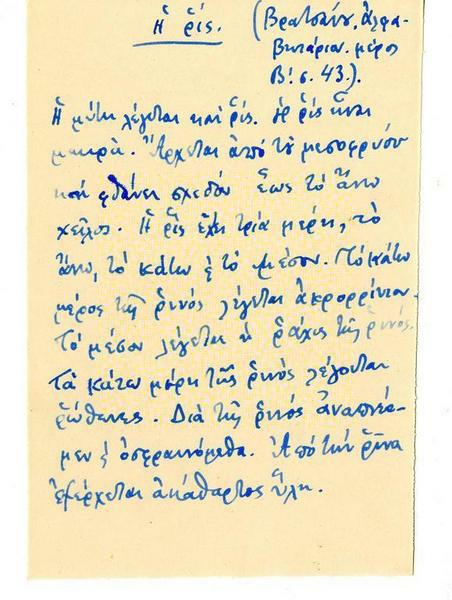 Ἡ ῥίς. (Βρατσάνου, ἀλφα-
βητάριον. μέρος
Β! σ. 43.).
Ἡ μύτη λέγεται καὶ ῥίς. Ἡ ῥίς εἶναι
μακρὰ. Ἄρχεται ἀπὸ τὸ μεσοφρύον
καὶ φθάνει σχεδὸν ἕως τὸ ἄνω
χεῖλος. Ἡ ῥὶς ἔχει τρία μέρη, τὸ
ἄνω, τὸ κάτω ϗ τὸ μέσον. Τὸ κάτω
μέρος τῆς ῥινός λέγεται ἀκρορρίνιον.
Τὸ μέσον λέγεται ἡ ῥάχις τῆς ῥινός.
Τὰ κάτω μέρη τῆς ῥινὸς λέγονται
ῥώθωνες. Διὰ τῆς ῥινὸς ἀναπνέο-
μεν ϗ ὀσφραινόμεθα. Ἀπὸ τὴν ῥῖνα
ἐξέρχεται ἀκάθαρτος ὕλη.